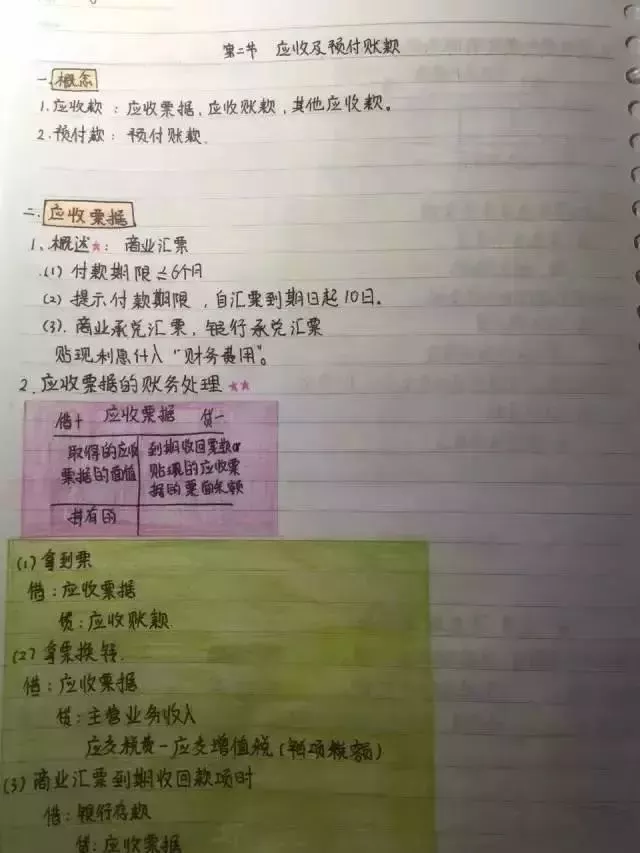 第二节 应收及预付账款
一.概念
1.应收款:应收票据、应收账款,其他应收款。
2.预付款:预付账款.
二.应收票据
1、概述★:商业汇票
(1)付款期限≤6个月
(2)提示付款期限,自汇票到期日起10日。
(3).商业承兑汇票,银行承兑汇票
贴现利息计入“财务费用”。
2.应收票据的账务处理★★
借+ 应收票据 贷一
取得的应收
票据的面值
到期收回票款or
贴现的应收票
据的票面余额
持有的
(1)拿到票
借:应收票据
贷:应收账款.
(2)拿票换钱.
借:应收票据
贷:主营业务收入
应交税费一应交增值税(销项税额)
(3)商业汇票到期收回款项时
借:银行存款
贷:应收票据